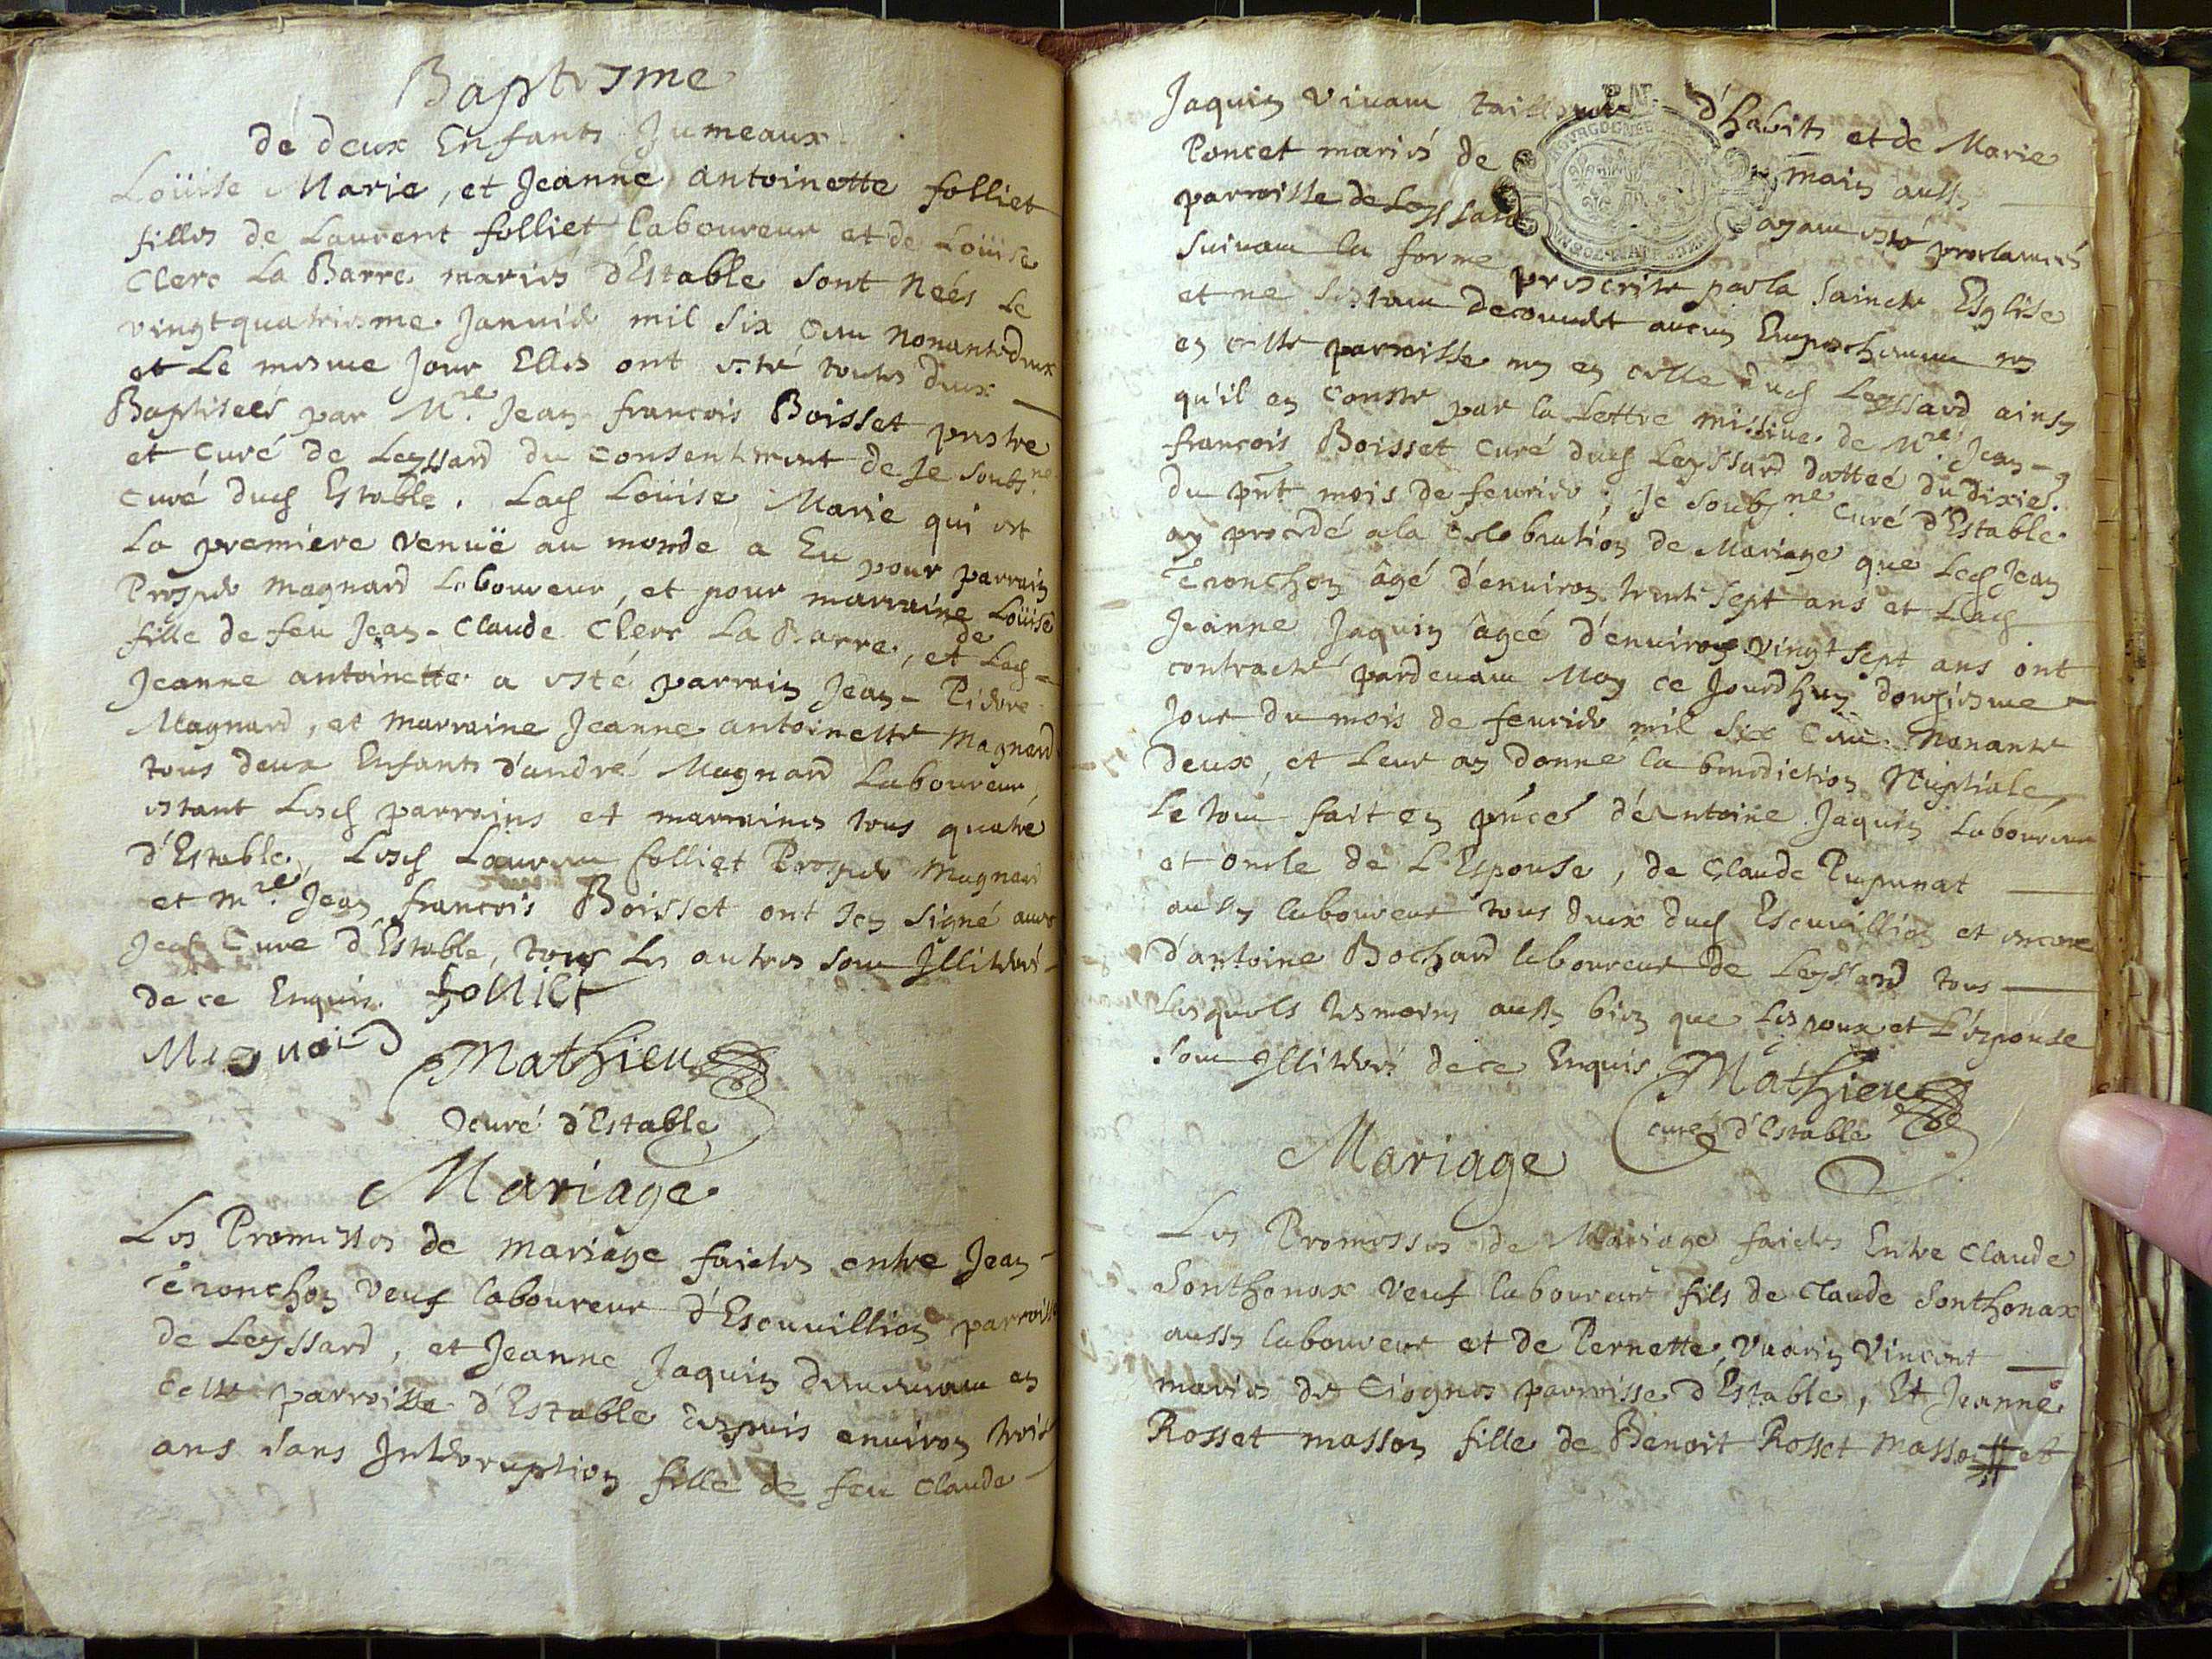 Baptesme
de deux Enfants Jumeaux
Loüise Marie, et Jeanne antoinette folliet
filles de Laurent folliet laboureur et de Loüise
Clerc La Barre mariés d'Estable sont Neés Le
vingtquatriesme Januier mil six Cent nonantedeux
et Le mesme Jour Elles ont esté toutes deux
Baptiseés par Mre. Jean francois Boisset prestre
et Curé de Leyssard du Consentement de Je soubsne.
Curé dud Estable. Lad Loüise Marie qui est
La premiére venuë au monde a Eu pour parrain
Prosper Magnard Laboureur, et pour marraine Loüise
fille de feu Jean-Claude Clerc La Barre, et de Lad
Jeanne antoinette a esté parrain Jean-Pierre
Magnard, et marraine Jeanne antoinette Magnard
tous deux Enfants d'andré Magnard Laboureur,
estant Lesd parrains et marraines tous quatre
d'Estable, Lesd Laurent folliet Prosper Magnard
et Mre. Jean francois Boisset ont Icy signé auec
Curé d'Estable, tous Les autres sont Illiterés
de ce Enquis. folliet
Magnard Mathieu
curé d'Estable
Mariage
Les Promesses de mariage faictes entre Jean
veuf laboureur d'Escuuillion parroisse
de Leyssard, et Jeanne Jaquin demeurant en
cette parroisse d'Estable depuis enuiron trois
ans sans Interruption fille de feu Claude
Jaquin viuant tailleur d'habits et de Marie
Poncet mariés de main aussy
parroisse de Leyssard ayant esté proclamés
suiuant la forme prescrite par la saincte Esglise
et ne sestant decouuert aucun Empechement ny
en cette parroisse ny en celle dud Leyssard ainsy
qu'il en Conste par la Lettre missiue de Mre. Jean
francois Boisset Curé dud Leyssard datteé du dixie.
du pnt mois de feurier; Je soubsne Curé d'Estable
ay procedé a la Celebration de Mariage que Led Jean
âgé d'enuiron trente sept ans et Lad
Jeanne Jaquin âgeé d'enuiron vingt sept ans ont
contracté pardeuant Moy ce Jourdhuy douziesme
Jour du mois de feurier mil six Cent Nonante
deux, et Leur ay donné la benediction Nuptiale,
Le tout fait en pnce d'Antoine Jaquin Laboureur
et oncle de L'Espouse, de Claude Pupunat
aussy laboureur tous deux dud Escuuillion et encore
d'antoine Bochard laboureur de Leyssard tous
Lesquels tesmoins aussy bien que L'espoux et L'espouse
sont Illiterés de ce Enquis. Mathieu
curé d'Estable
Mariage
Les Promesses de Mariage faictes Entre Claude
Sonthonax veuf laboureur fils de Claude Sonthonax
aussy laboureur et de Pernette Vuarin Vincent
mariés de Ciognes parroisse d'Estable, Et Jeanne
Rosset masson fille de Benoit Rosset masson et